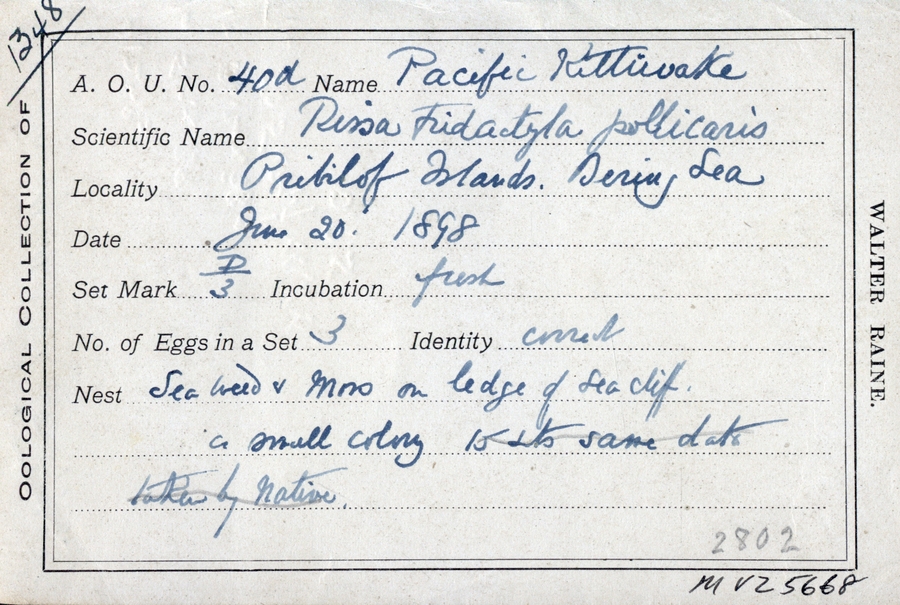 1348
A. O. U. No. 40d Name Pacific Kittiwake
Scientific Name Rissa Tridactyla pollicaris
Locality Pribilof Islands. Bering Sea
Date June 20. 1898
Set Mark D/3 Incubation fresh
No. of Eggs in a Set 3 Identity correct
Nest Sea weed & Moss on ledge of Sea cliff.
a small colony 15 sets same date
taken by Native.
2802
MVZ 5668
OOLOGICAL COLLECTION OF
WALTER RAINE.